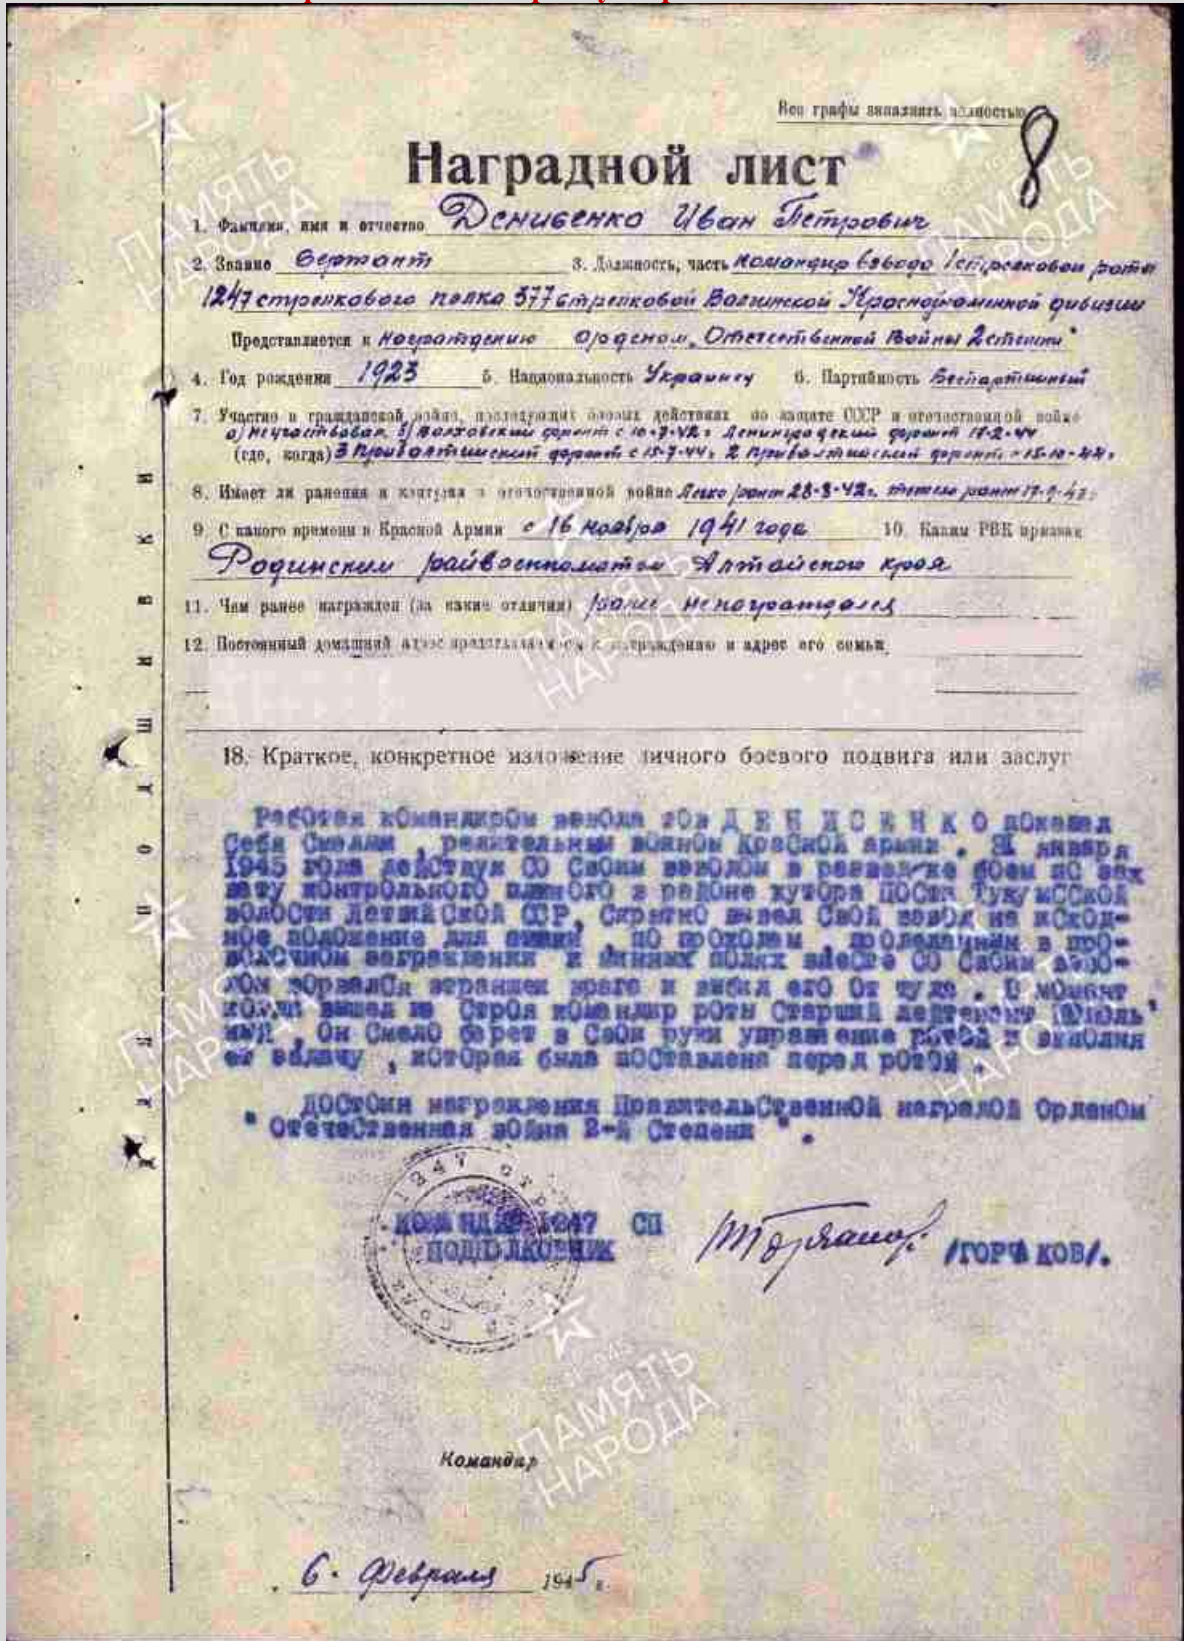 Все графы заполнять полностью
8
Наградной лист
1. Фамилия, имя и отчество Денисенко Иван Петрович
2. Звание Сержант 3. Должность, часть Командир взвода 1 стрелковой роты
1247 стрелкового полка 377 стрелковой Валгинской Краснознаменной дивизии
Представляется к Награждению орденом „Отечественной Войны 2 степени"
4. Год рождения 1923 5. Национальность Украинец 6. Партийность Беспартийный
7. Участие в гражданской войне, последующих боевых действиях по защите СССР и отечественной войне
а) Неучаствовал б) Волховский фронт с 10-7-42г Ленинградский фронт 17-2-44
(где, когда) 3 Прибалтийский фронт с 15-7-44г 2 Прибалтийский фронт с 15-10-44г
8. Имеет ли ранения и контузии в отечественной войне Легко ранен 28-8-42г. тяжело ранен
9. С какого времени в Красной Армии с 16 ноября 1941 года 10. Каким РВК призван
Родинским райвоенкоматом Алтайского края
11. Чем ранее награжден (за какие отличия) ранее ненаграждался
12. Постоянный домашний адрес представляемого к награждению и адрес его семьи
18. Краткое, конкретное изложение личного боевого подвига или заслуг
Работая командиром взвода тов ДЕНИСЕНКО показал
Себя Смелым , решительным воином Красной армии . января
1945 года действуя СО Своим взводом в разведке боем по зах
вату контрольного пленного в районе хутора ПОСТЫ Тукумсской
волости Латвийской ССР, Скрытно вывел Свой взвод на исход-
ное положение для , по проходам , проделанным в про-
волочном заграждении и минных полях вместе СО Своим взво-
дом ворвался втраншеи врага и выбил его От туда . В момент
когда вышел из Строя командир роты Старший лейтенант
, Он Смело берет в Свои руки управление ротой и выполня
ет задачу , которая была поставлена перед ротой .
ДОСТОИН награждения Правительственной наградой Орденом
" Отечественная война 2-й Степени " .
КОМАНДИР 1247 СП
ПОДПОЛКОВНИК /ГОРЧАКОВ/.
Командир
6. Февраля 1945 г.
ПАМЯТЬ
НАРОДА